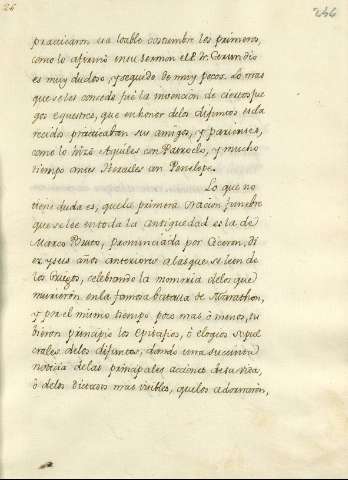 26
246
practicaron esa loable costumbre los primeros,
como lo afirmó en su sermon el P. Fr. Gerundio
es muy dudoso, y seguido de muy pocos. Lo mas
que se les concede fué la invencion de ciertos jue
gos equestres, que en honor de los difuntos escla
recidos practicaban sus amigos, y parientes,
como lo hizo Aquiles con Patroclo, y mucho
tiempo antes Heracles con Penelope.
Lo que no
tiene duda es, que la primera oracion funebre
que se lee en toda la antiguedad es la de
Marco Bruto, pronunciada por Ciceron, di
ez y seis años anteriores a las que se leen de
los Griegos, celebrando la memoria de los que
murieron en la famosa batalla de Marathon,
y por el mismo tiempo poco mas, ò menos, tu
bieron principio los epitafios, ò elogios sepul
crales de los difuntos, dando una succinta
noticia de las principales acciones de su vida,
ò de los dictados mas visibles, que los adornaron,